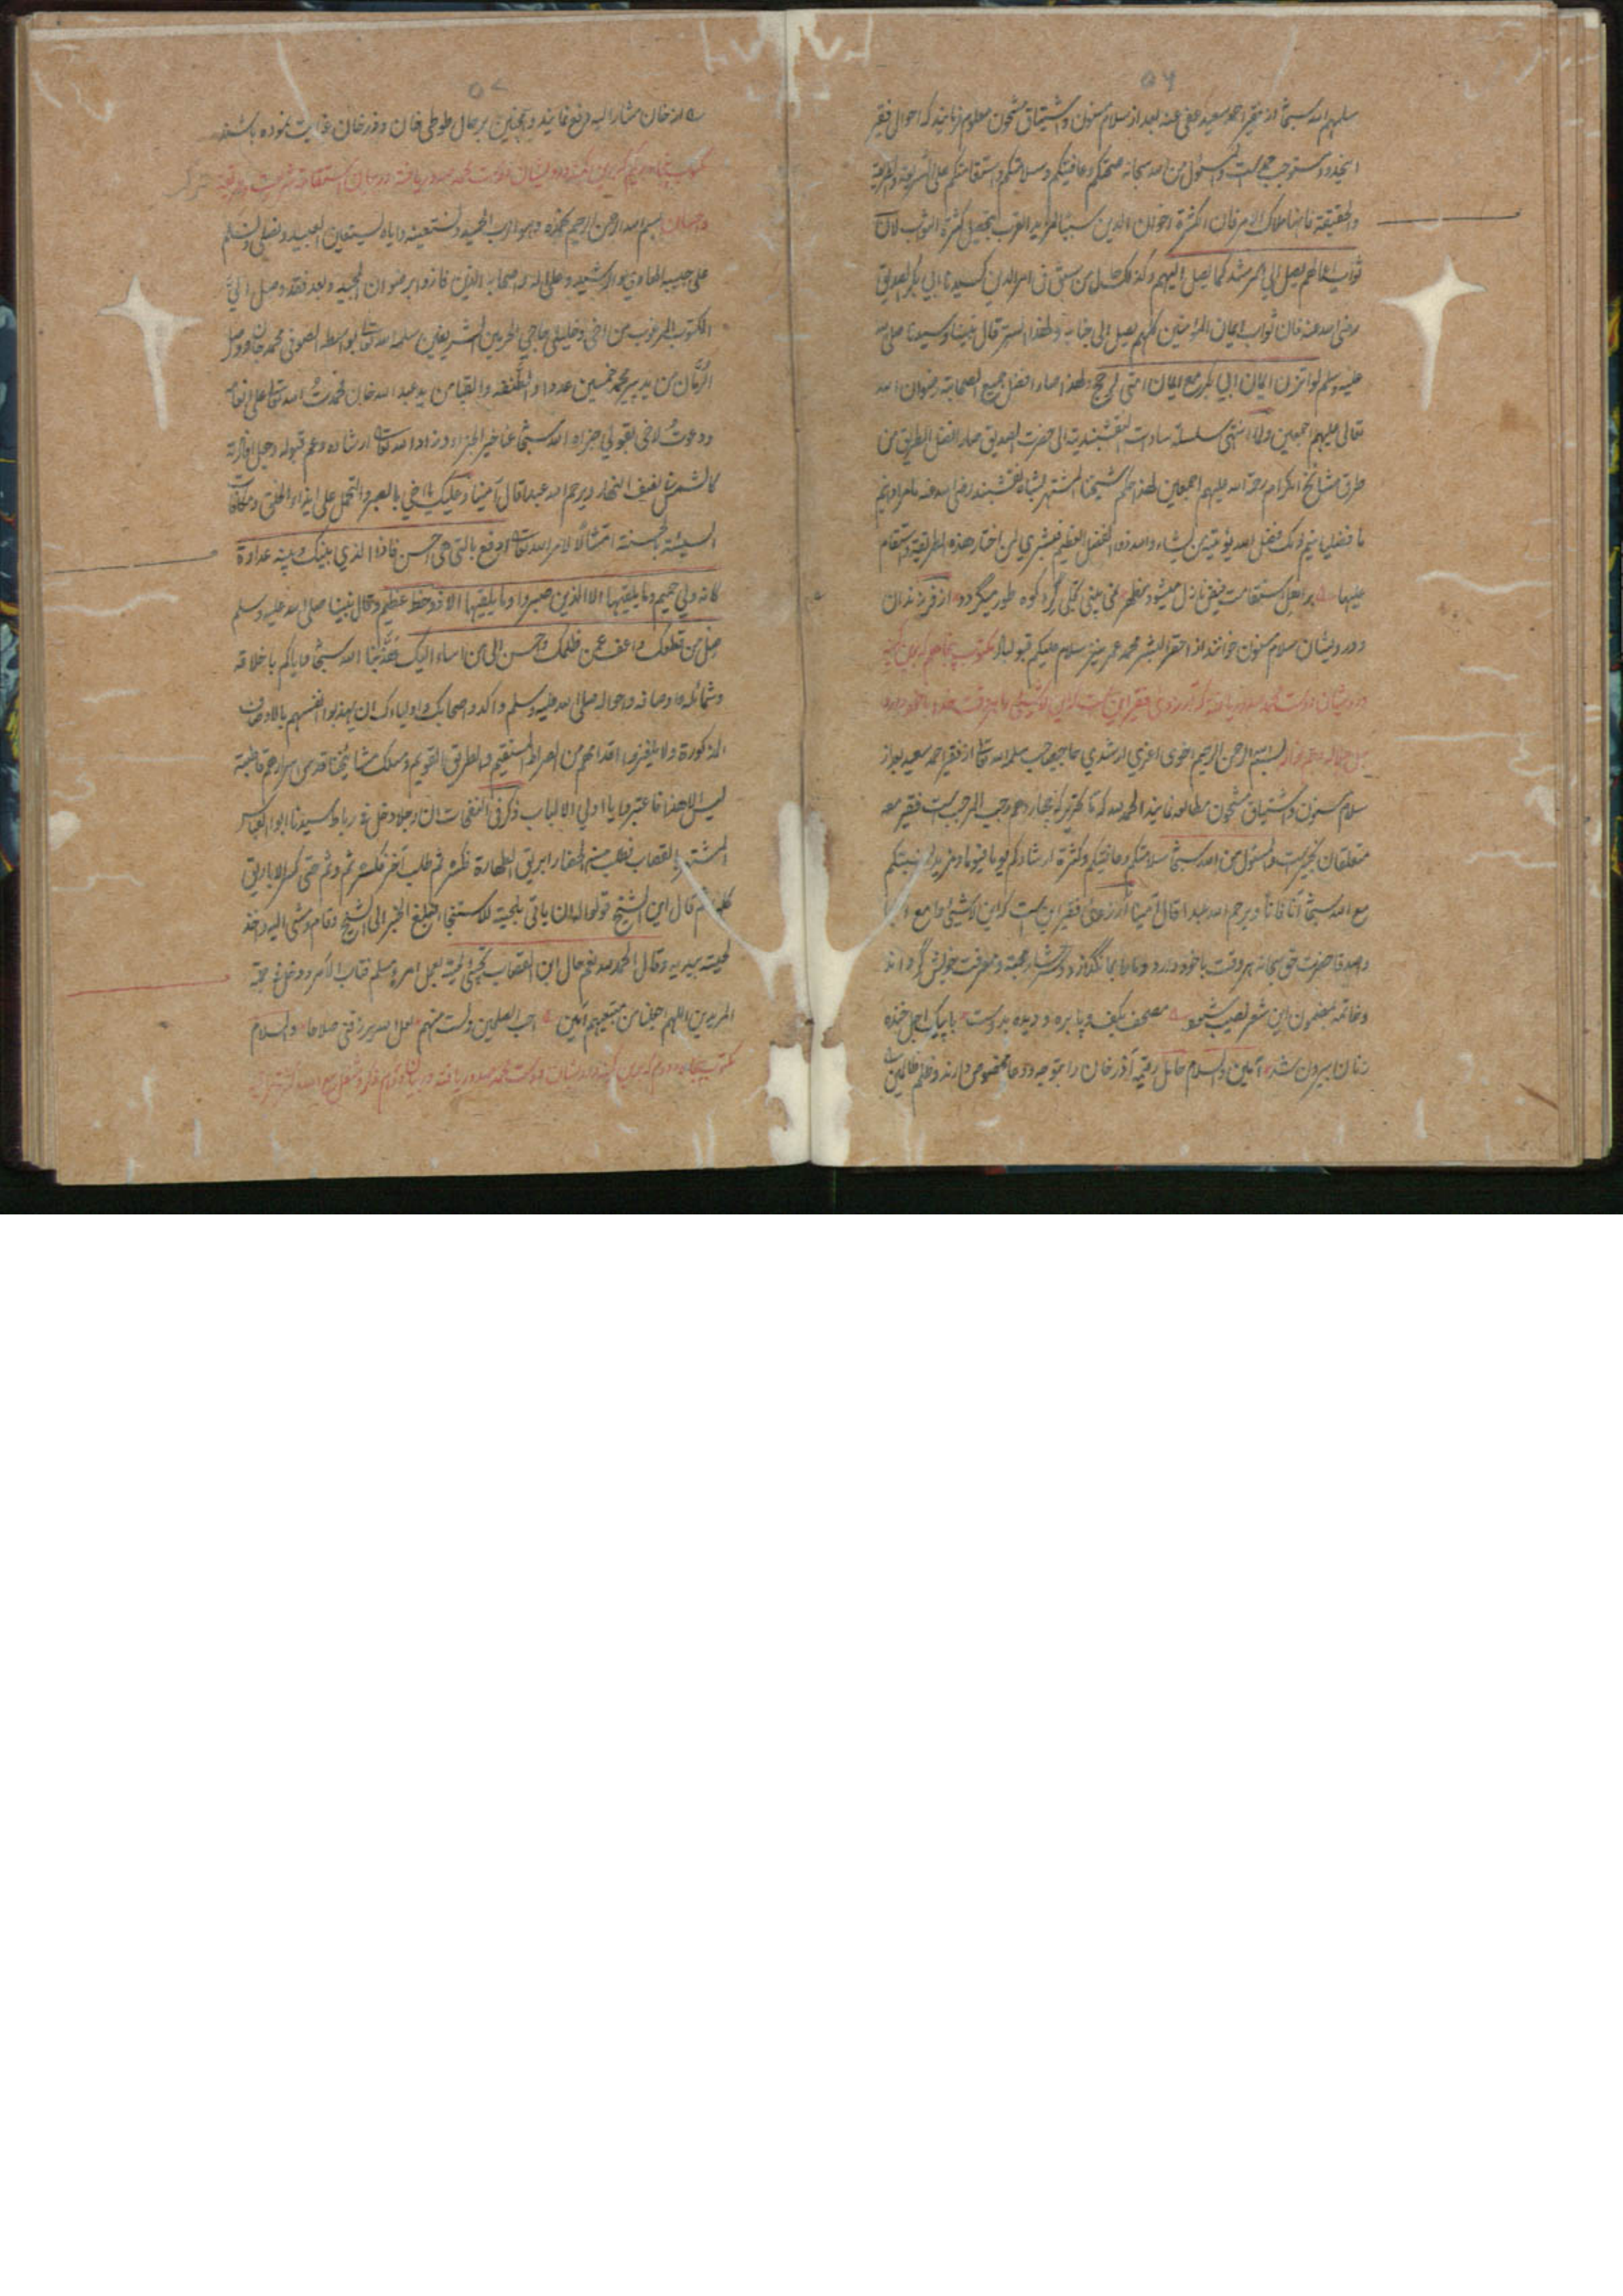 ۵۶
سلمهم الله سبحانه از فقیر احمد سعید عفی عنه بعد از سلام مسنون و اشتیاق مشحون معلوم فرمایند که احوال فقیر
اینحدود مستوجب حمد است والمسئول من الله سبحانه صحتکم وعافیتکم وسلامتکم واستقامتکم علی الشریعة والطریقة
والحقیقة فانها ملاک الامر فان لکثرة اخوان الدین سببا لمزید القرب بتحصیل کثرة الثواب لان
ثواب اعمالهم یصل الی المرشد کما یصل الیهم وکذلک حال من سبق فی امر الدین کسیدنا ابی بکر الصدیق
رضی الله عنه فان ثواب ایمان المؤمنین کلهم یصل الی جنابه ولهذا السر قال نبینا وسیدنا صلی الله
علیه وسلم لو اتزن ایمان ابی بکر مع ایمان امتی لرجح ولهذا صار افضل جمیع الصحابة رضوان الله
تعالی علیهم اجمعین ولما انتهی سلسلة ساداتنا النقشبندیة الی حضرت الصدیق صار افضل الطریق من
طرق مشائخ الکرام رحمة الله علیهم اجمعین لهذا حکم شیخنا المشتهر بشاه نقشبند رضی الله عنه ما مرادانیم
ما فضلیانیم ذلک فضل الله یؤتیه من یشاء والله ذو الفضل العظیم فبشری لمن اختار هذه الطریقة واستقام
علیها بر اهل استقامت فیض نازل میشود مظهر نمی بینی تجلی گرد کوه طور میگردد از فرزندان
و درویشان سلام مسنون خوانند از احقر البشر محمد عمر نیز سلام علیکم قبول باد مکتوب پنجاهم
درویشان دوست محمد صدور یافته که آرزوی فقیر این است
بسم الله الرحمن الرحیم اخوی اعزی ارشدی حاجی صاحب سلمه الله تعالی از فقیر احمد سعید بعد از
سلام مسنون و اشتیاق مشحون مطالعه نمایند الحمد لله که تا تحریر که چهاردهم رجب المرجب است فقیر معه
متعلقان بخیر است والمسئول من الله سبحانه سلامتکم وعافیتکم وکثرة ارشادکم یوما فیوما ومزید نسبتکم
مع الله سبحانه آنا فآنا ویرحم الله عبدا قال آمینا آرزوی فقیر این است که این لاشیئ را مع احبا
و اصدقا حضرت حق سبحانه هر وقت با خود دارد و ما را بما نگذارد و سرشار محبت و معرفت خویش گرداند
و خاتمه مضمون این شعر نصیب شود مصحف بکف و پا بره و دیده بدوست با پیک اجل خنده
زنان بیرون شد آمین والسلام حامل رقیمه آذر خان را بتوجه و دعا مخصوص دارند و ظلم ظالمین
۵۷
از خان مشار الیه دفع نمایند و همچنین بر حال طوطی خان و وزر خان عنایت نموده باشند
بسم الله الرحمن الرحیم نحمده وهو الرب الحمید ونستعینه وایاه یستعین العبید ونصلی ونسلم
علی حبیبه الهادی والرشید وعلی آله واصحابه الذین فازوا برضوان المجید وبعد فقد وصل الیّ
المکتوب المرغوب من اخی وخلیلی حاجی الحرمین الشریفین سلمه الله تعالی بواسطه الصوفی محمد جان ووصل
الرمان من ید پیر محمد خمسین عددا وایضا من ید عبد الله خان فحمدت الله تعالی علی انعامه
ودعوت لاخی بقولی جزاه الله سبحانه عنا خیر الجزاء وزاد الله تعالی ارشاده وعم قبوله وجعل انواره
کالشمس نصف النهار ویرحم الله عبدا قال آمینا وعلیک یا اخی بالصبر والتحمل علی ایذاء الخلق ومکافات
السیئة بالحسنة امتثالا لامر الله تعالی ادفع بالتی هی احسن فاذا الذی بینک وبینه عداوة
کانه ولی حمیم وما یلقیها الا الذین صبروا وما یلقیها الا ذو حظ عظیم وقال نبینا صلی الله علیه وسلم
صل من قطعک واعف عمن ظلمک واحسن الی من اساء الیک هذبنا الله سبحانه وایاکم باخلاقه
وشمائله واوصافه واحواله صلی الله علیه وسلم واکد واصحابک واولیاءک ان یهذبوا انفسهم بالاوصاف
المذکورة ولا یلغزن اقدامهم من الصراط المستقیم والطریق القویم ومسلک مشائخنا قدس سرارهم قاطبة
لیس الا هذا فاعتبروا یا اولی الالباب ذکر فی النفحات ان رجلا دخل فی رباط سیدنا ابو العباس
المشتهر بالقصاب فطلب منه الحفار ابریق الطهارة فکسره ثم طلب آخر فکسره ثم وثم حتی کسر الاباریق
کله ثم قال این الشیخ قولوا له ان یأتی بلحیته للاستنجا فبلغ الخبر الی الشیخ فقام ومشی الیه واخذ
لحیته بیدیه وقال الحمد لله نعم حال ابن القصاب تجیئ لحیته بعمل امرء مسلم فتاب الآمر ودخل فی جمة
المریدین اللهم اجعلنا من متبعیهم آمین احب الصلحین ولست منهم لعل الله یرزقنی صلاحا والسلام